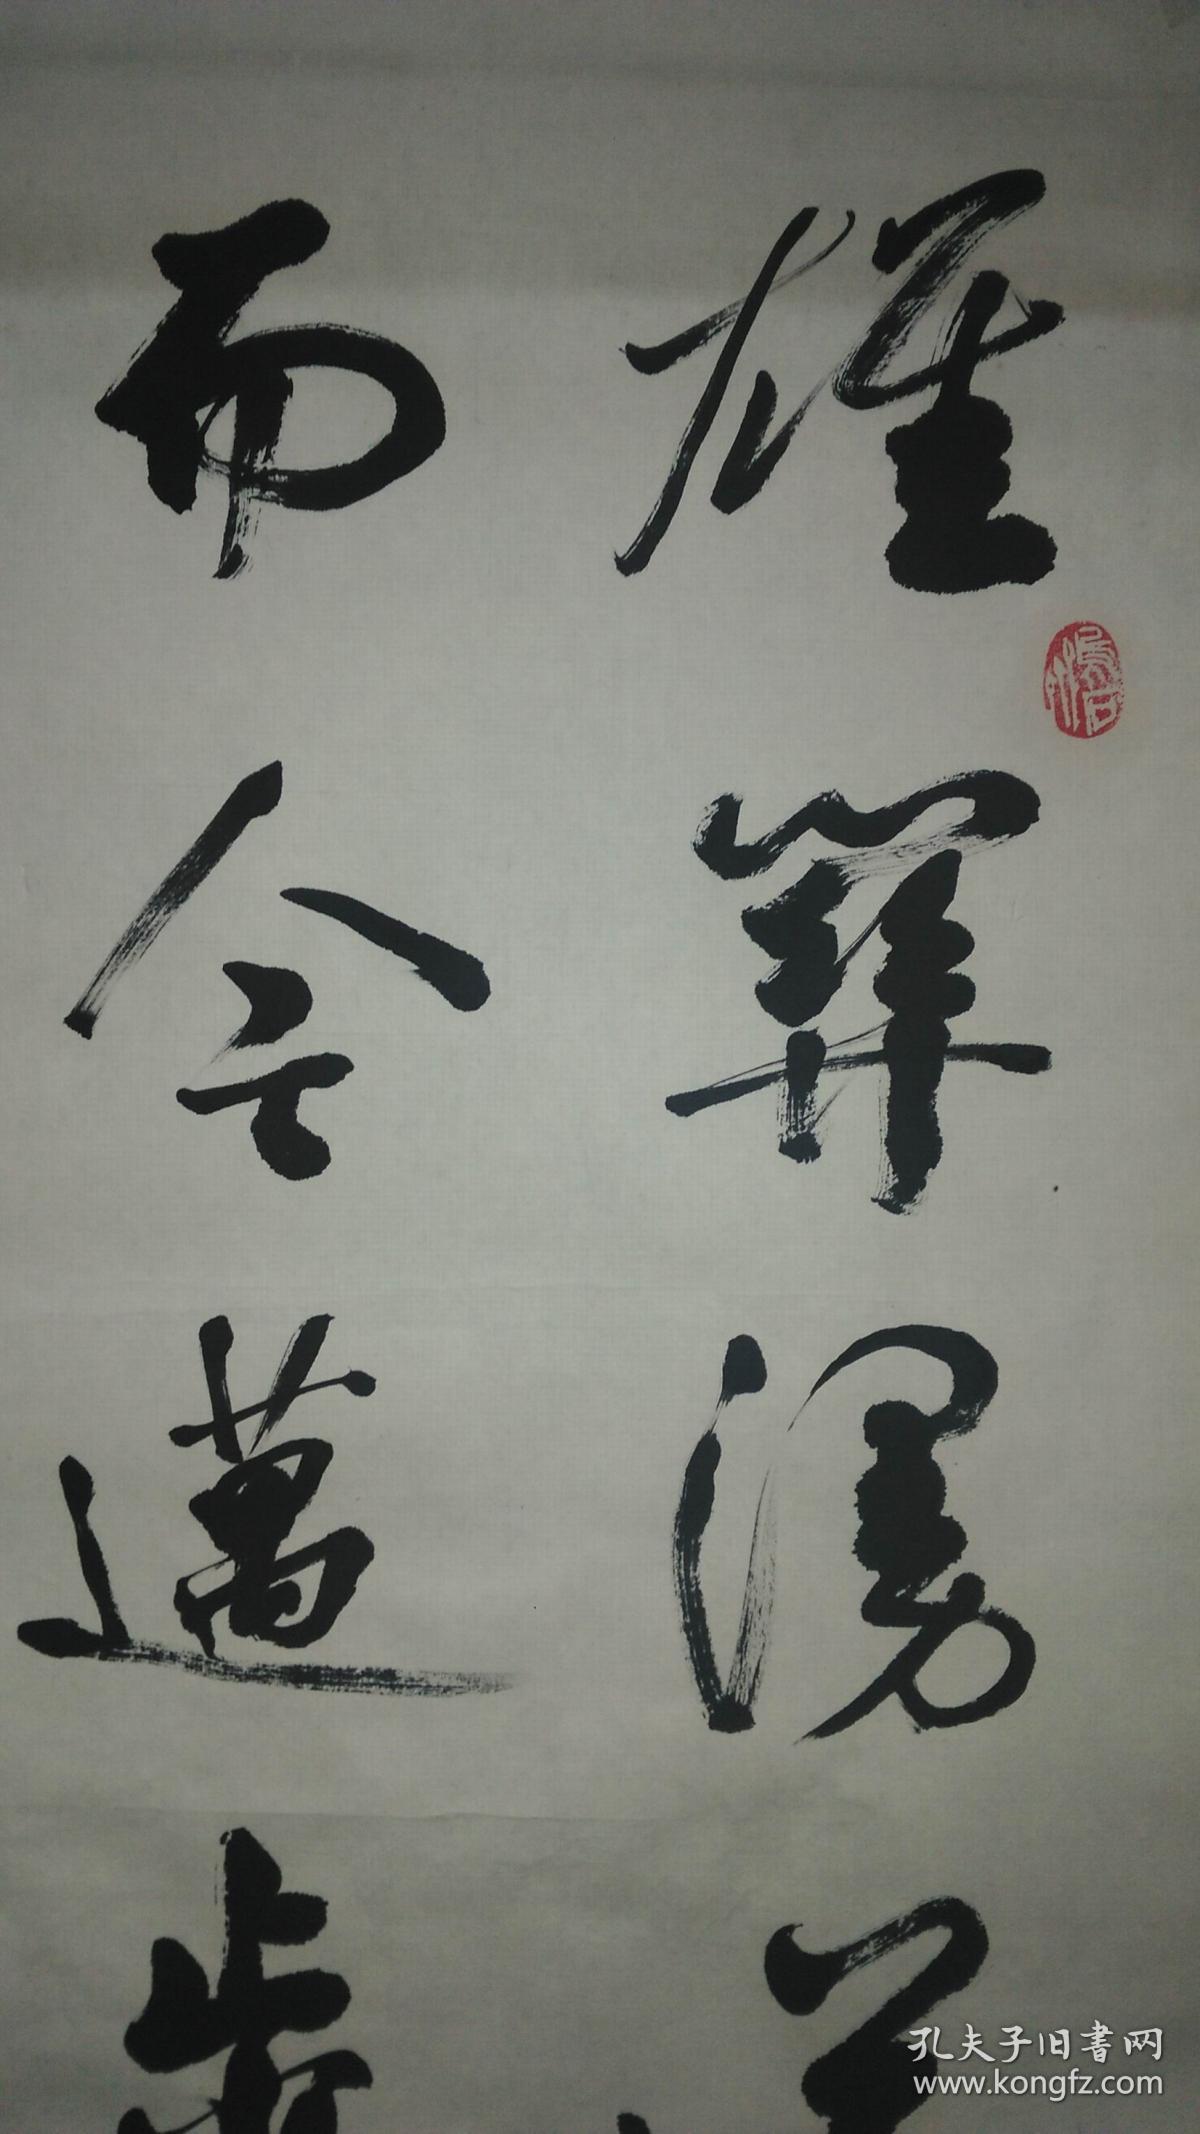 雄關漫道
而今邁步
孔夫子旧書网
www.kongfz.com